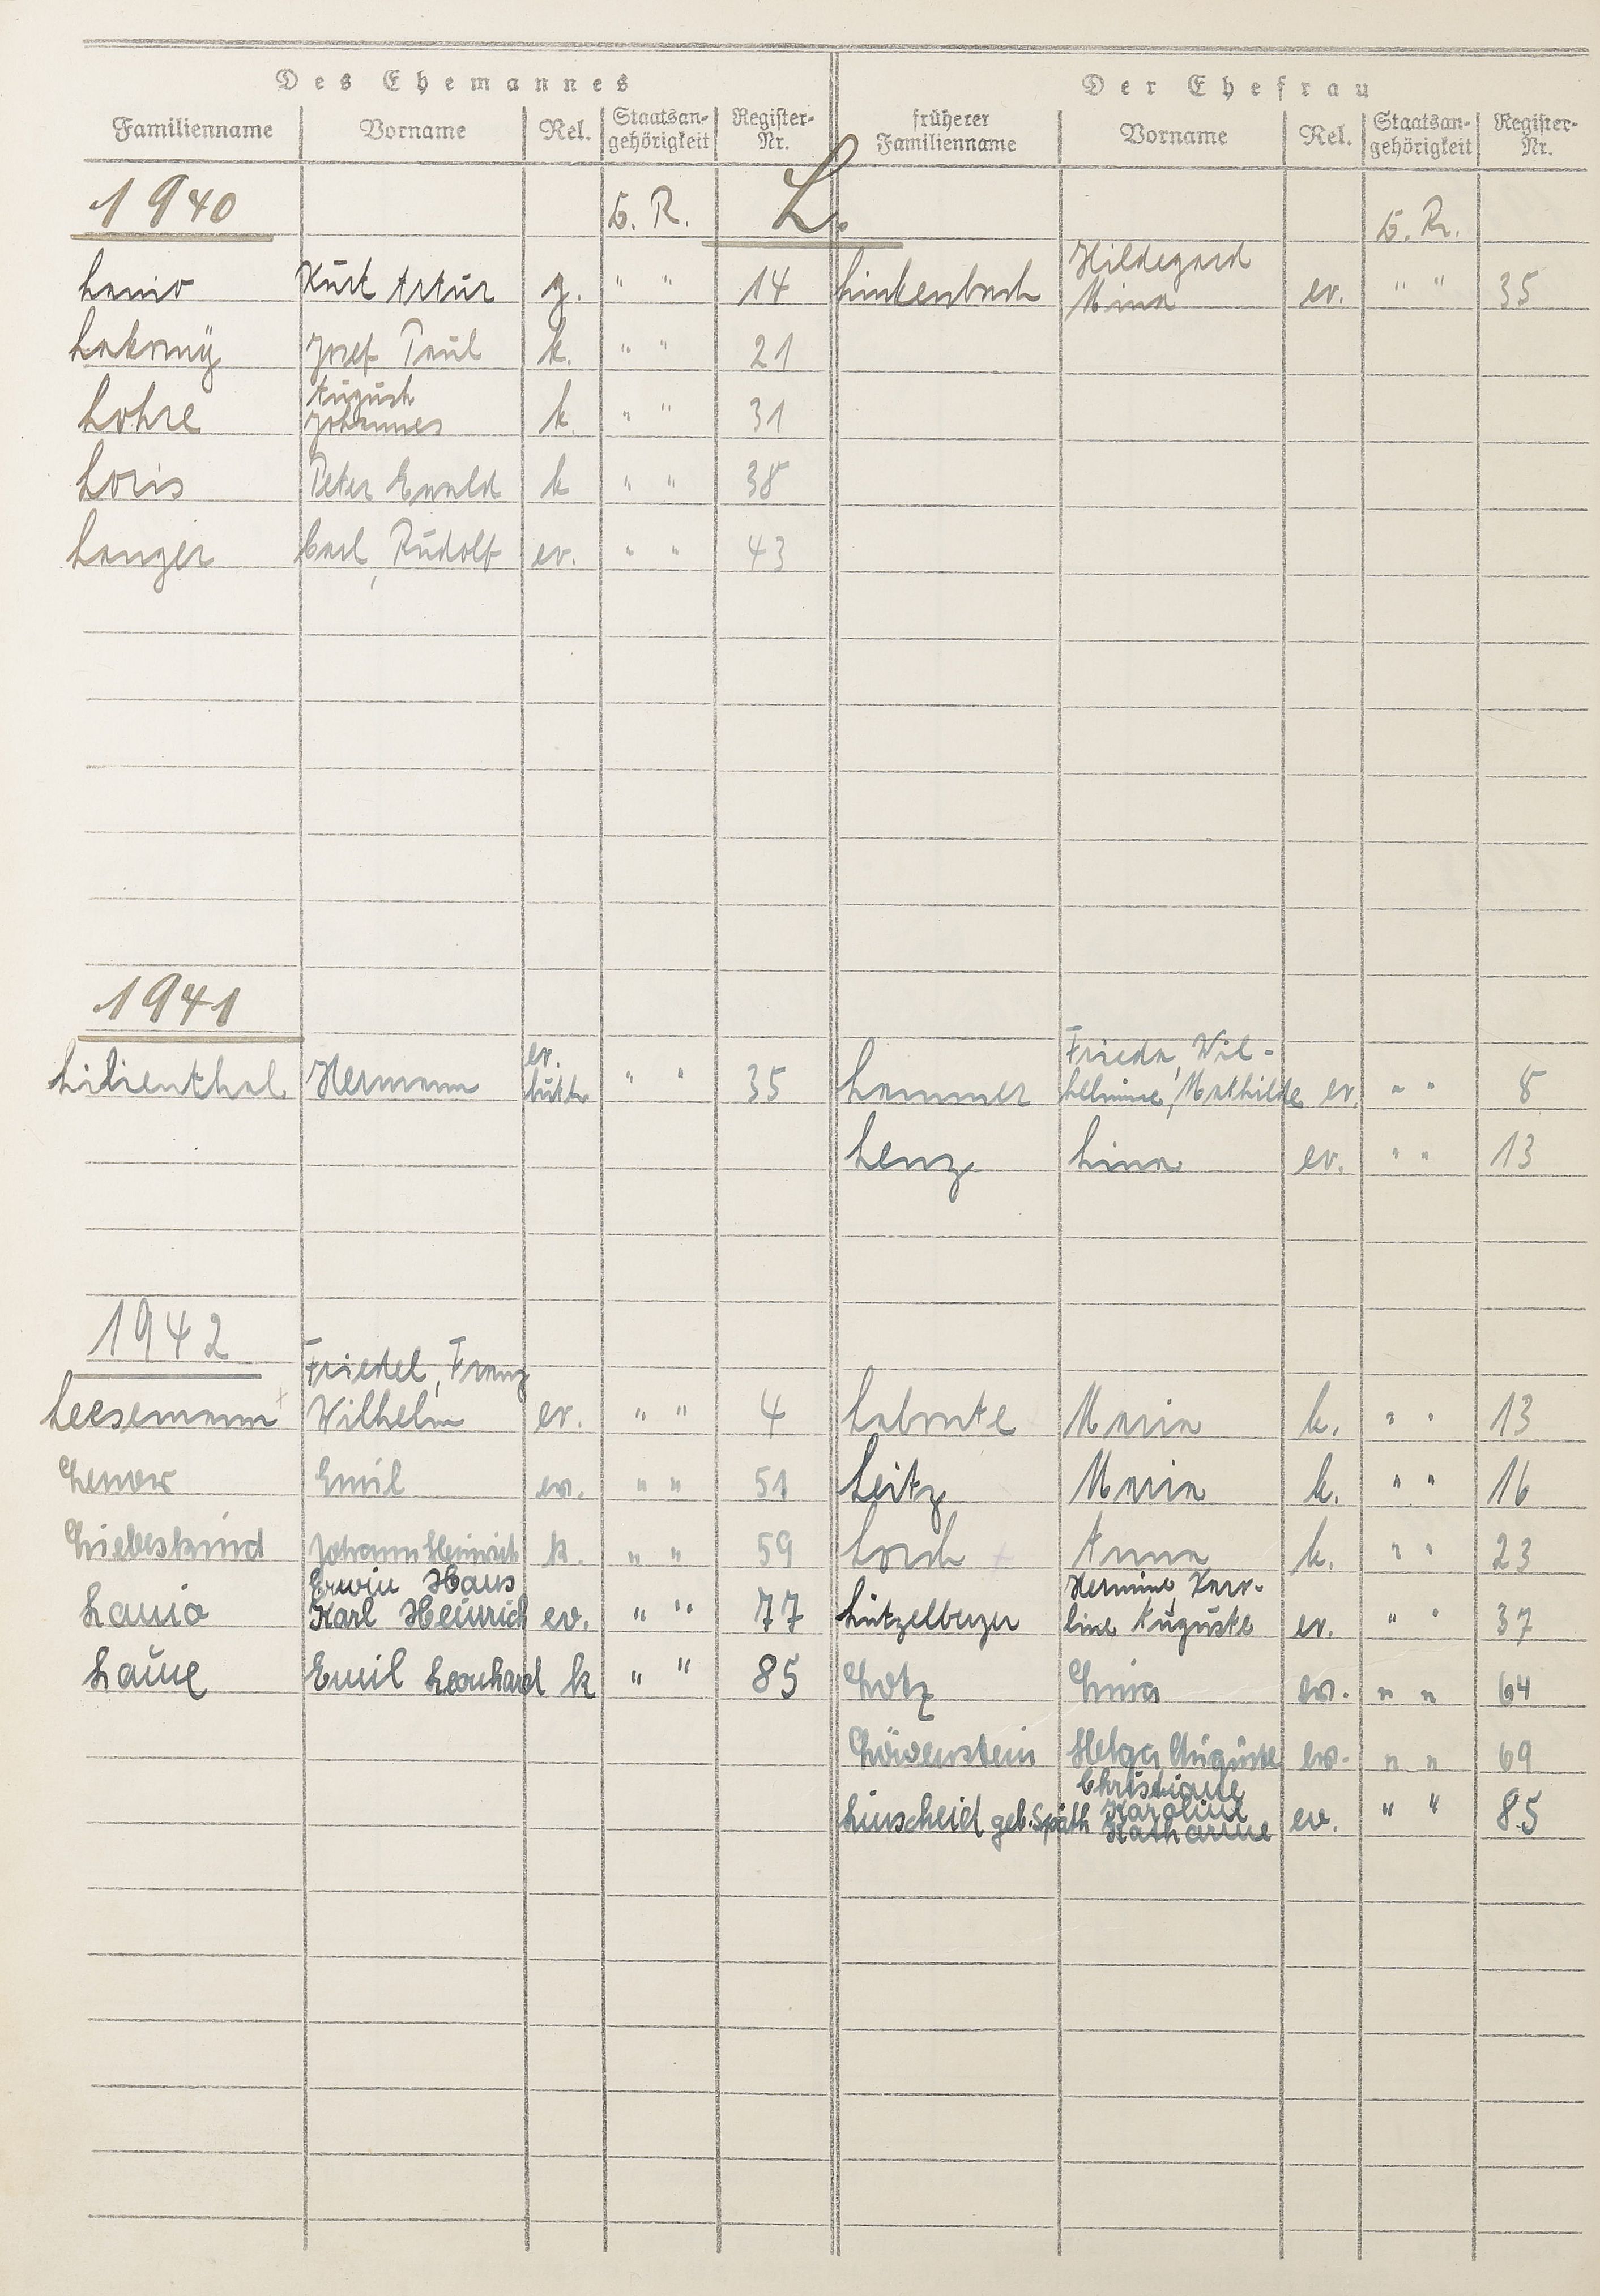 Des Ehemannes Der Ehefrau
Familienname Vorname Rel. Staatsan-gehörigkeit Register-Nr. früherer Familienname Vorname Rel. Staatsan-gehörigkeit Register-Nr.
L.
1940 D. R. D. R.
Hildegard
Lanio Kurt Artur g. " " 14 Linkenbach Mina ev. " " 35
Lakomÿ Josef Paul k. " " 21
August
Lohre Johannes k. " " 31
Loris Peter Ewald k " " 38
Langer Carl, Rudolf ev. " " 43
1941
ev. Frieda, Wil-
Lilienthal Hermann luth. " " 35 Lammer helmine, Mathilde ev. " " 8
Lenz Lina ev. " " 13
1942
Friedel, Franz
Leesemann Wilhelm ev. " " 4 Labonte Maria k. " " 13
Lenow Emil ev. " " 51 Leitz Maria k. " " 16
Liebeskind Johann Heinrich k. " " 59 Lorch Anna k. " " 23
Erwin Hans Hermine, Karo-
Lanio Karl Heinrich ev. " " 77 Lützelberger line Auguste ev. " " 37
Laue Emil Leonhard k " " 85 Lotz Lina ev. " " 64
Löwenstein Helga Auguste ev. " " 69
Christiane
Karoline
Linscheid geb. Späth Katharine ev. " " 85